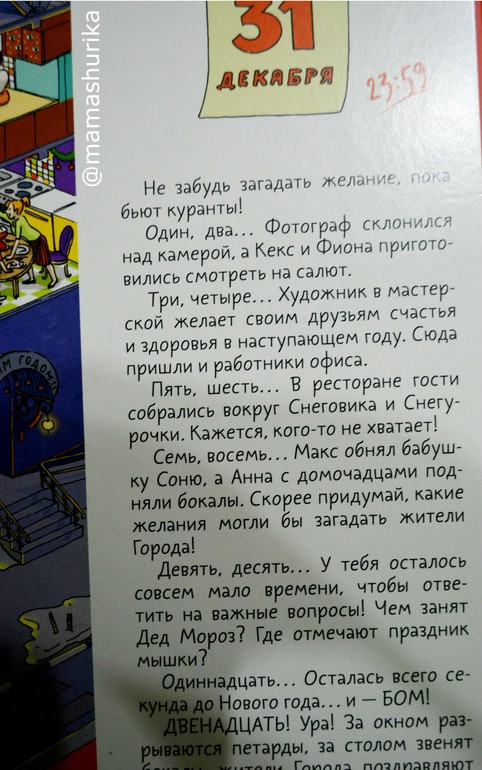 @mamashurika
31
ДЕКАБРЯ
23:59
Не забудь загадать желание, пока
бьют куранты!
Один, два... Фотограф склонился
над камерой, а Кекс и Фиона пригото-
вились смотреть на салют.
Три, четыре... Художник в мастер-
ской желает своим друзьям счастья
и здоровья в наступающем году. Сюда
пришли и работники офиса.
Пять, шесть... В ресторане гости
собрались вокруг Снеговика и Снегу-
рочки. Кажется, кого-то не хватает!
Семь, восемь... Макс обнял бабуш-
ку Соню, а Анна с домочадцами под-
няли бокалы. Скорее придумай, какие
желания могли бы загадать жители
Города!
Девять, десять... У тебя осталось
совсем мало времени, чтобы отве-
тить на важные вопросы! Чем занят
Дед Мороз? Где отмечают праздник
мышки?
Одиннадцать... Осталась всего се-
кунда до Нового года... и — БОМ!
ДВЕНАДЦАТЬ! Ура! За окном раз-
рываются петарды, за столом звенят
бокалы, жители Города поздравляют
ИМ ГОДОМ!